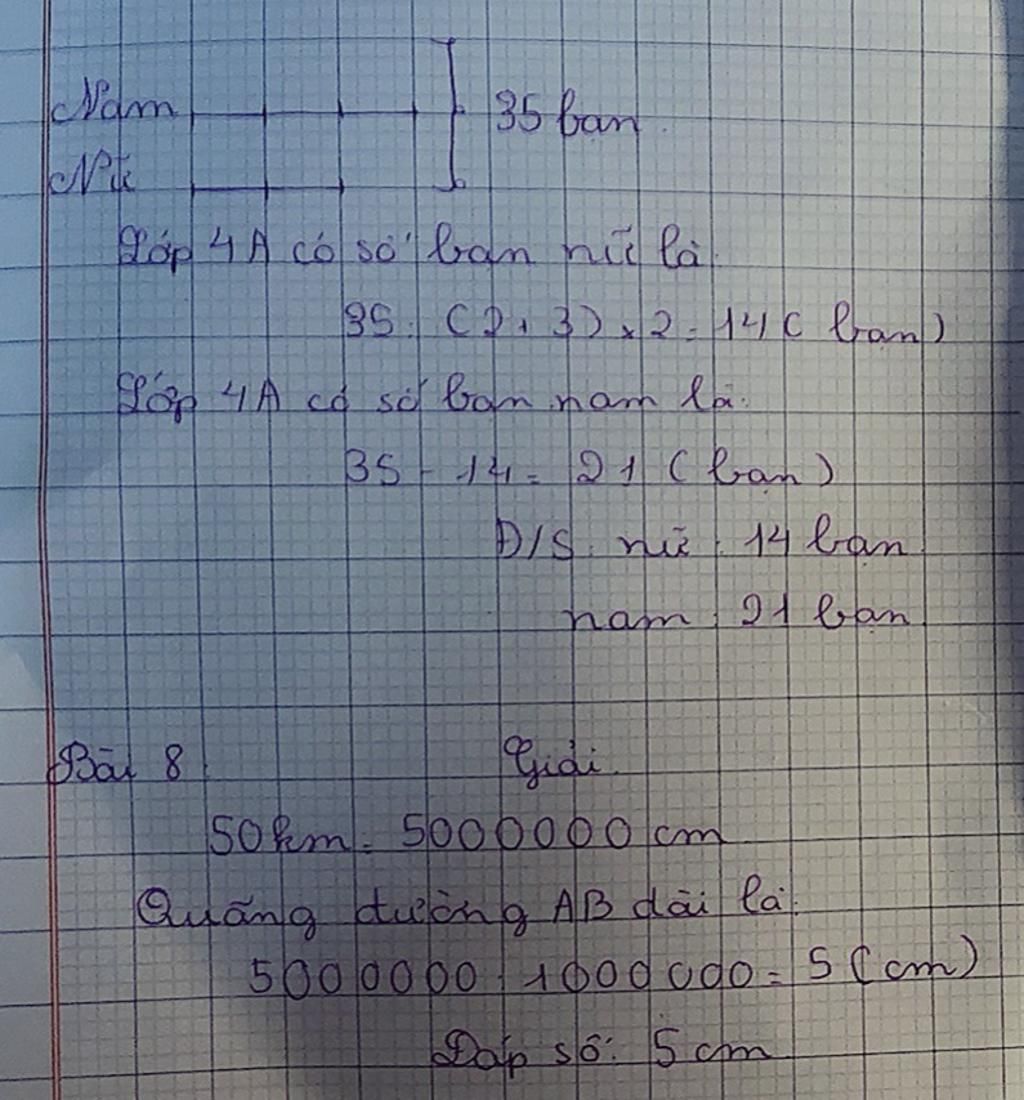 Nam 35 bạn
Nữ
Lớp 4A có số bạn nữ là:
35 : (2 + 3) x 2 = 14 ( bạn )
Lớp 4A có số bạn nam là:
35 - 14 = 21 ( bạn )
Đ/S: nữ : 14 bạn
nam : 21 bạn
Bài 8: Giải
50km = 5000000 cm
Quãng đường AB dài là:
5000000 : 1000000 = 5 (cm)
Đáp số: 5 cm